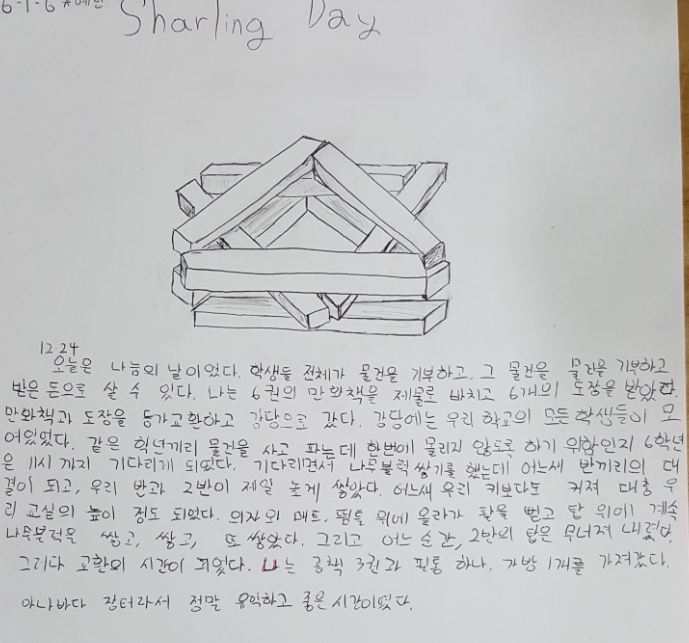 6-1-6
Sharling Day
12.24
오늘은 나눔의 날이었다. 학생들 전체가 물건을 기부하고, 그 물건을 물건을 기부하고
받은 돈으로 살 수 있다. 나는 6권의 만화책을 제물로 바치고 6개의 도장을 받았다.
만화책과 도장을 등가교환하고 강당으로 갔다. 강당에는 우리 학교의 모든 학생들이 모
여있었다. 같은 학년끼리 물건을 사고 파는데 한번에 몰리지 않도록 하기 위함인지 6학년
은 11시 까지 기다리게 되었다. 기다리면서 나무블럭 쌓기를 했는데 어느새 반끼리의 대
결이 되고, 우리 반과 2반이 제일 높게 쌓았다. 어느새 우리 키보다도 커져 대충 우
리 교실의 높이 정도 되었다. 의자와 매트, 뜀틀 위에 올라가 팔을 뻗고 탑 위에 계속
나무블럭을 쌓고, 쌓고, 또 쌓았다. 그리고 어느 순간, 2반의 탑은 무너져 내렸다.
그러다 교환의 시간이 되었다. 나는 공책 3권과 필통 하나, 가방 1개를 가져갔다.
아나바다 장터라서 정말 유익하고 좋은 시간이었다.